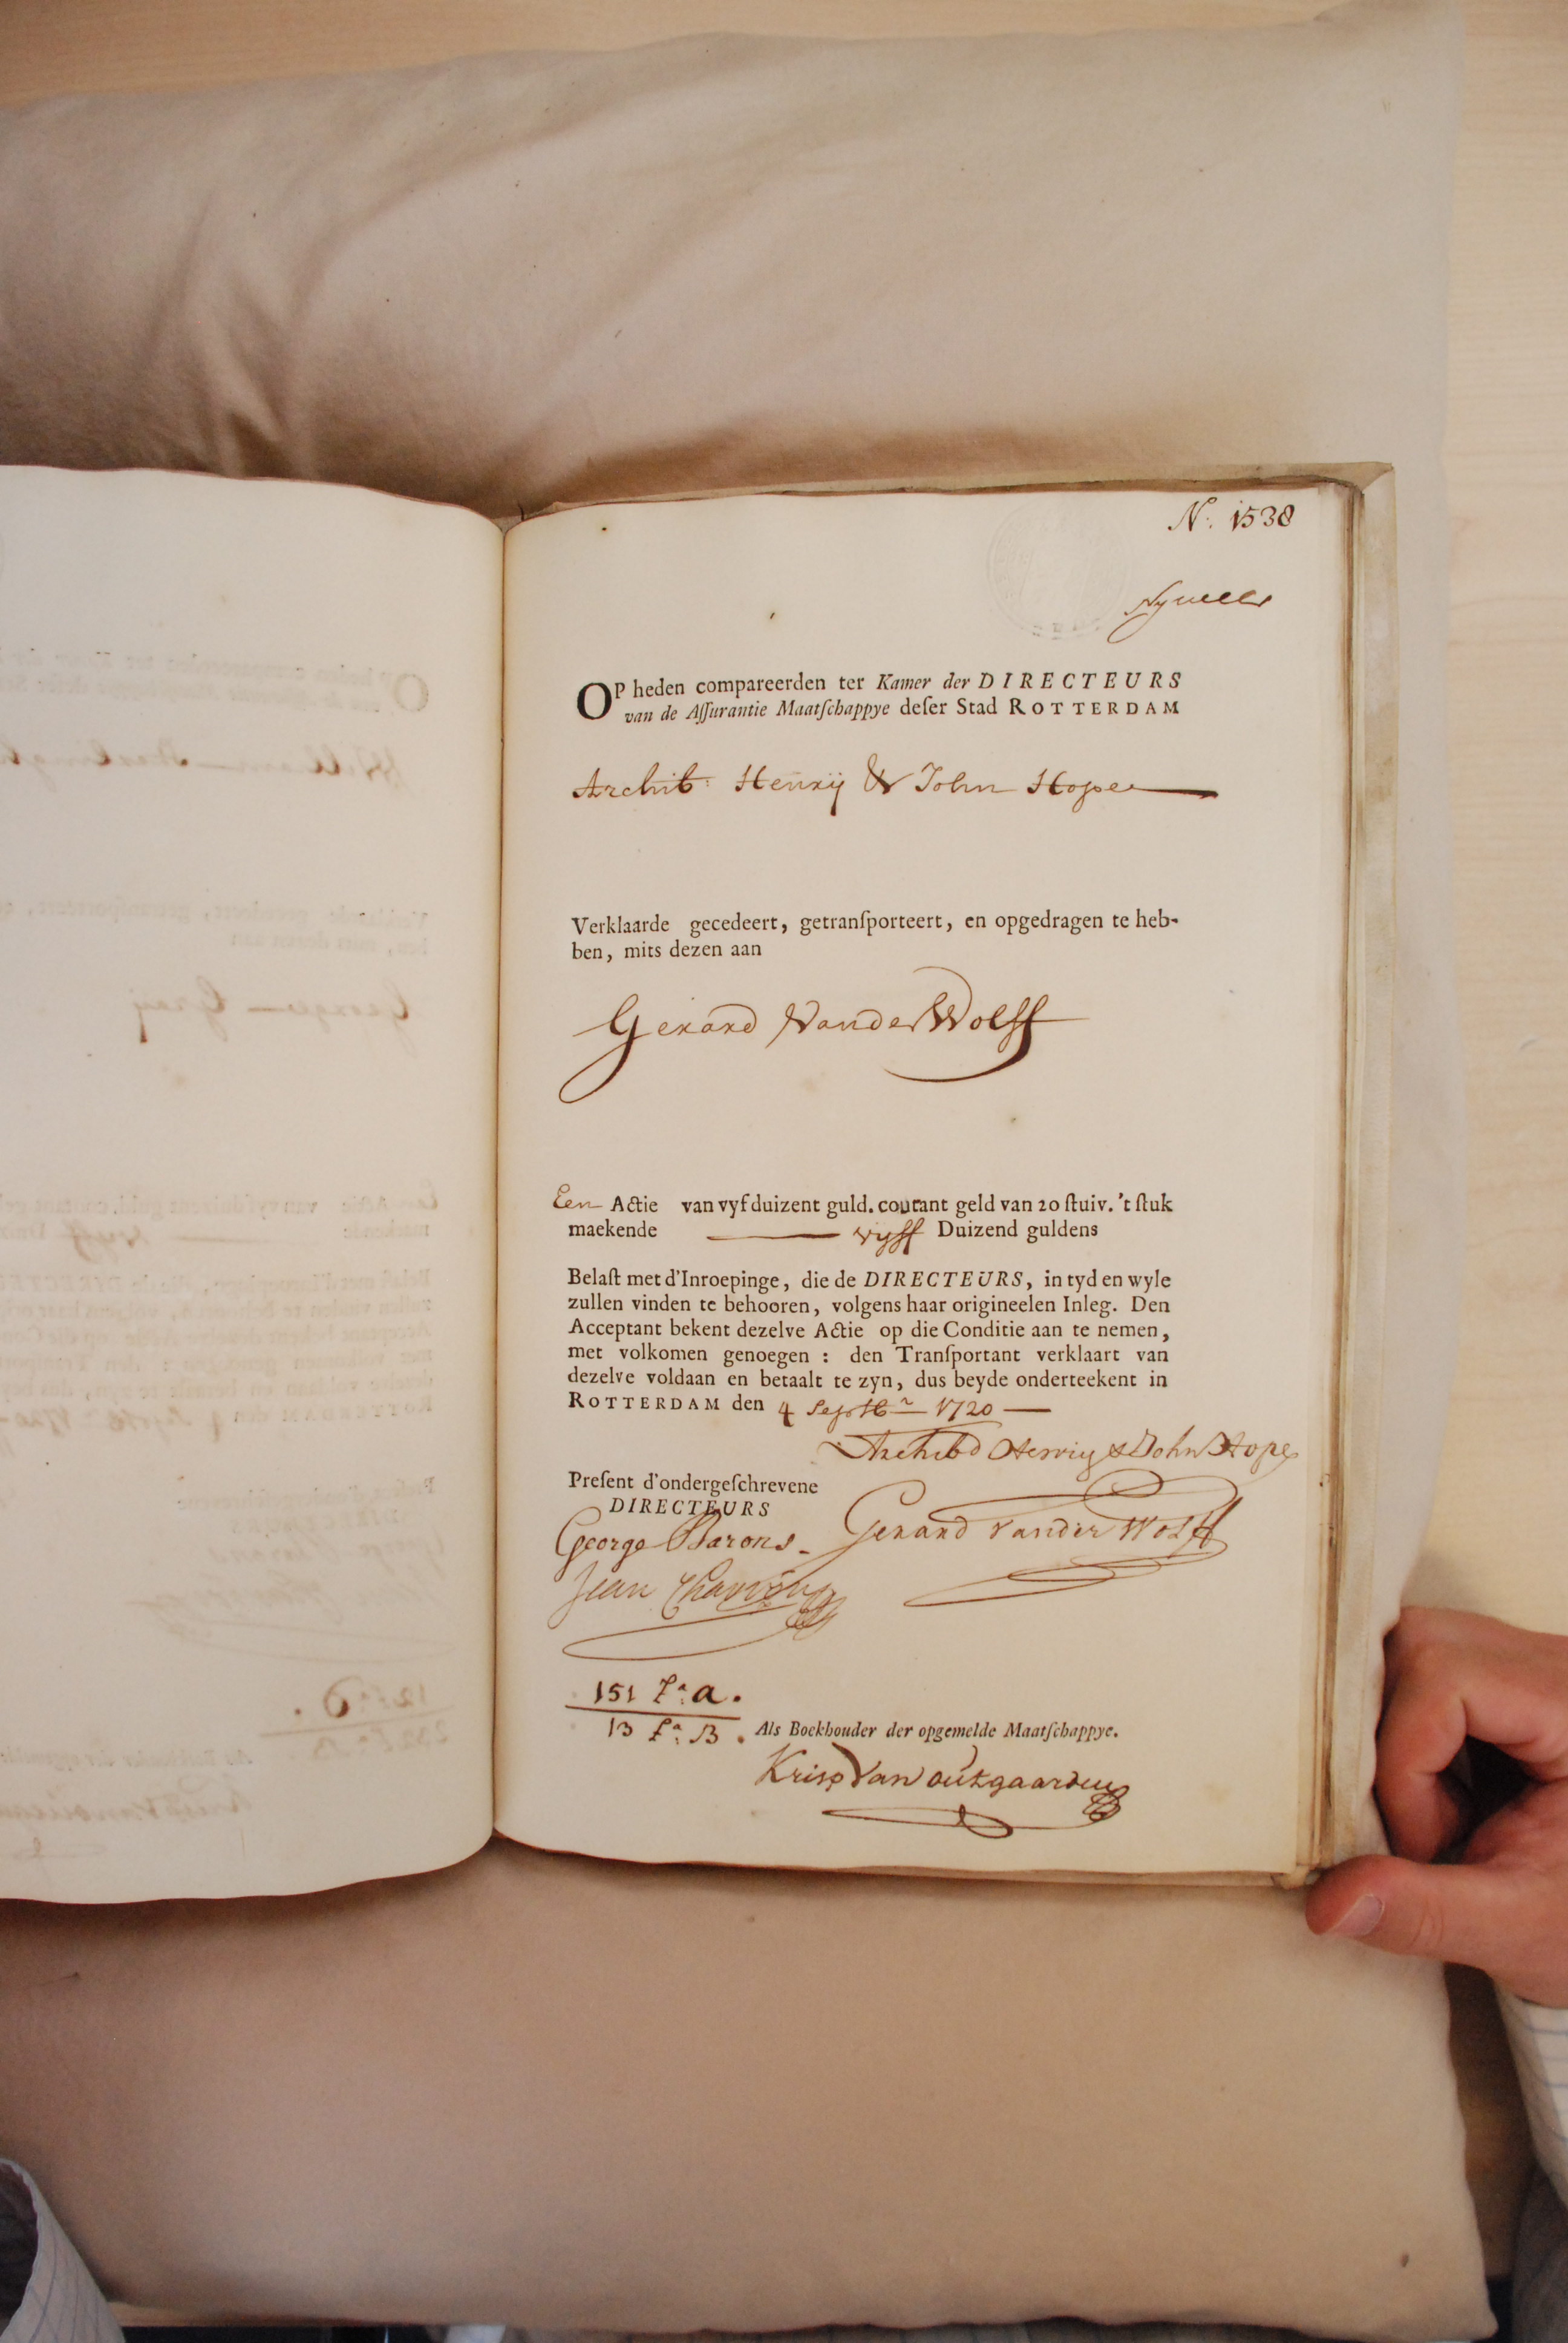 N. 1538
OP heden compareerden ter Kamer der DIRECTEURS
van de Aſſurantie Maatſchappye deſer Stad ROTTERDAM
Archib: Henrij & John Hope
Verklaarde gecedeert, getranſporteert, en opgedragen te heb-
ben, mits dezen aan
Gerard Vander Wolff
Een Actie van vyf duizent guld. courant geld van 20 ſtuiv. 't ſtuk
maekende vyff Duizend guldens
Belaſt met d'Inroepinge, die de DIRECTEURS, in tyd en wyle
zullen vinden te behooren, volgens haar origineelen Inleg. Den
Acceptant bekent dezelve Actie op die Conditie aan te nemen,
met volkomen genoegen : den Tranſportant verklaart van
dezelve voldaan en betaalt te zyn, dus beyde onderteekent in
ROTTERDAM den 4 Septbr 1720
Archibd Henry & John Hope
Preſent d'ondergeſchrevene
DIRECTEURS
George Barons
Gerard Vander Wolff
Jean
151 Fa: a.
13 Fa: B. Als Boekhouder der opgemelde Maatſchappye.
Krisp Van outgaarden